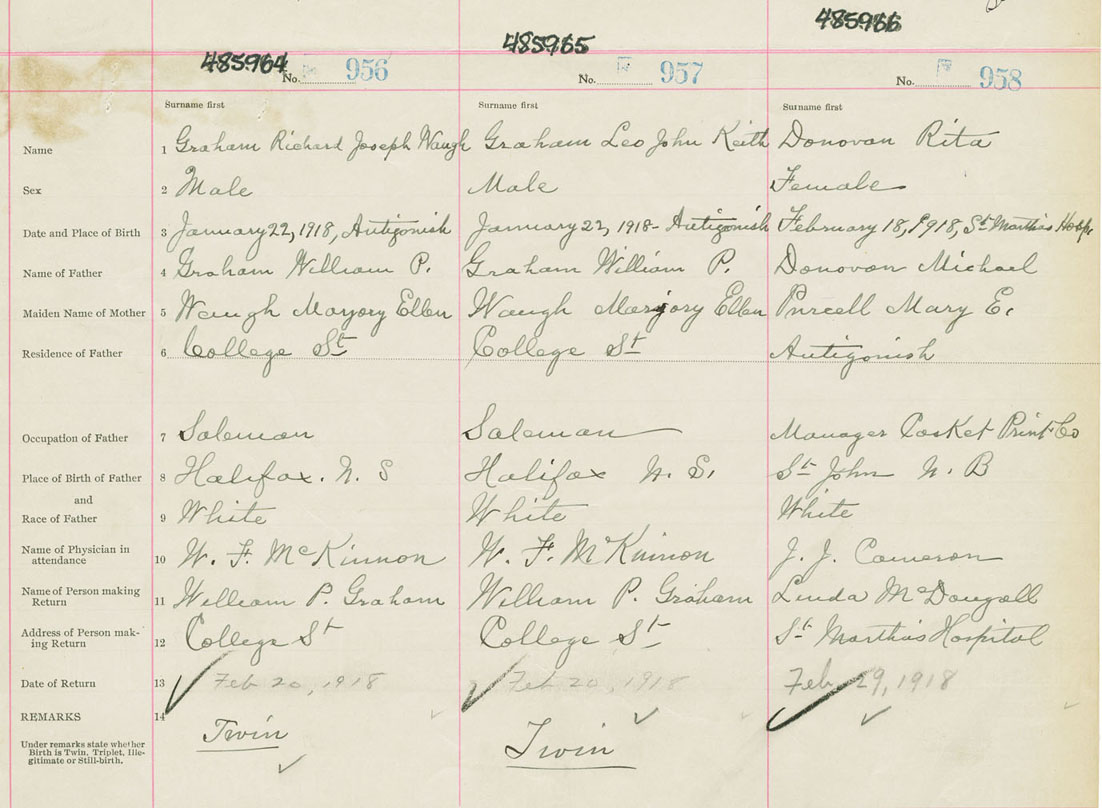 485964 485965 485966
No. 956 No. 957 No. 958
Surname first Surname first Surname first
Name 1 Graham Richard Joseph Waugh Graham Leo John Keith Donovan Rita
Sex 2 Male Male Female
Date and Place of Birth 3 January 22, 1918, Antigonish January 22, 1918 - Antigonish February 18, 1918, St Martha's Hosp
Name of Father 4 Graham William P. Graham William P. Donovan Michael
Maiden Name of Mother 5 Waugh Marjory Ellen Waugh Marjory Ellen Purcell Mary E.
Residence of Father 6 College St College St Antigonish
Occupation of Father 7 Salesman Salesman Manager Casket Print Co
Place of Birth of Father 8 Halifax. N. S Halifax N. S. St John N. B
and
Race of Father 9 White White White
Name of Physician in
attendance 10 W. F. McKinnon W. F. McKinnon J. J. Cameron
Name of Person making
Return 11 William P. Graham William P. Graham Linda McDougall
Address of Person mak-
ing Return 12 College St College St St Martha's Hospital
Date of Return 13 Feb 20, 1918 Feb 20, 1918 Feb 29, 1918
REMARKS 14 Twin Twin
Under remarks state whether
Birth is Twin, Triplet, Ille-
gitimate or Still-birth.